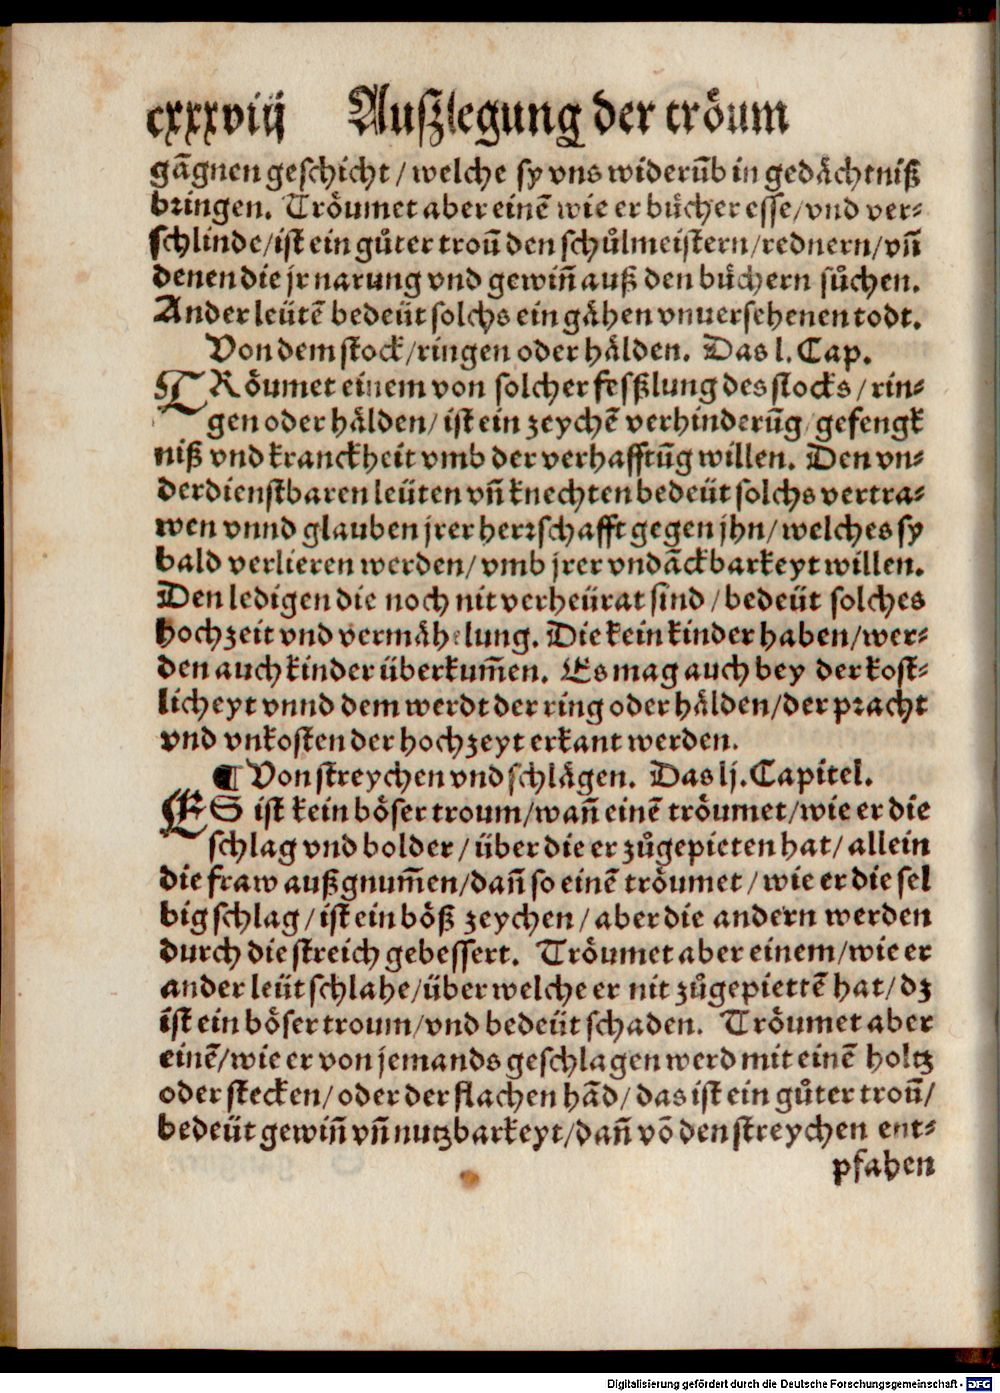 cxxxviij Auſzlegung der tröum
gãgnen geſchicht / welche ſy vns widerũb in gedächtniß
bꝛingen. Tröumet aber einẽ wie er bücher eſſe / vnd ver⸗
ſchlinde / iſt ein gůter troum̃ den ſchůlmeiſtern / rednern / vñ
denen die jr narung vnd gewiñ auß den büchern ſůchen.
Ander leütẽ bedeüt ſolchs ein gähen vnuerſehenen todt.
Von dem ſtock / ringen oder hälden. Das l. Cap.
TRöumet einem von ſolcher feſßlung des ſtocks / rin⸗
gen oder hälden / iſt ein zeychẽ verhinderũg / gefengk
niß vnd kranckheit vmb der verhafftũg willen. Den vn⸗
derdienſtbaren leüten vñ knechten bedeüt ſolchs vertra⸗
wen vnnd glauben jrer herꝛſchafft gegen jhn / welches ſy
bald verlieren werden / vmb jrer vndãckbarkeyt willen.
Den ledigen die noch nit verheürat ſind / bedeüt ſolches
hochzeit vnd vermähelung. Die kein kinder haben / wer⸗
den auch kinder überkum̃en. Es mag auch bey der koſt⸗
licheyt vnnd dem werdt der ring oder hälden / der pꝛacht
vnd vnkoſten der hochzeyt erkant werden.
¶ Von ſtreychen vnd ſchlägen. Das lj. Capitel.
ES iſt kein böſer troum / wañ einẽ tröumet / wie er die
ſchlag vnd bolder / über die er zůgepieten hat / allein
die fraw außgnum̃en / dañ ſo einẽ tröumet / wie er die ſel
big ſchlag / iſt ein böß zeychen / aber die andern werden
durch die ſtreich gebeſſert. Tröumet aber einem / wie er
ander leüt ſchlahe / über welche er nit zůgepiettẽ hat / dz
iſt ein böſer troum / vnd bedeüt ſchaden. Tröumet aber
einẽ / wie er von jemands geſchlagen werd mit einẽ holtz
oder ſtecken / oder der flachen hãd / das iſt ein gůter troum̃ /
bedeüt gewiñ vñ nutzbarkeyt / dañ võ den ſtreychen ent⸗
pfahen
Digitalisierung gefördert durch die Deutsche Forschungsgemeinschaft - DFG